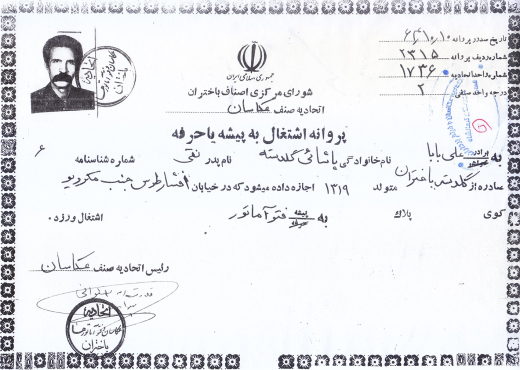 تاریخ صدور پروانه ۱۰ر۱۰ر۶۱
شماره ردیف پروانه ۲۳۱۵
شماره واحد اتحادیه ۱۷۳۶
درجه واحد صنفی ۲
جمهوری اسلامی ایران
شورای مرکزی اصناف باختران
اتحادیه صنف عکاسان
پروانه اشتغال به پیشه یا حرفه
به برادر علی بابا نام خانوادگی پاشائی گلدسته نام پدر تقی شماره شناسنامه ۶
صادره از باختران متولد ۱۳۱۹ اجازه داده میشود که در خیابان افشار طوس جنب
کوی پلاک به پیشه فتو آماتور اشتغال ورزد.
رئیس اتحادیه صنف عکاسان
اتحادیه
باختران